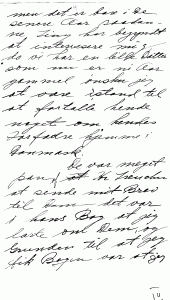 men det er kun i de
senere Aar saadan-
ne Ting har begyndt
at interessere mig
da vi har en lille Datter
som nu er ni Aar
gammel ønsker jeg
at være istand til
at fortælle hende
noget om hendes
Forfædre hjemme i
Danmark
De var meget
at Hr
at sende mit Brev
til Dem det var
i hans Bog at jeg
læste om Dem, og
Grunden til at jeg
fik Bogen var at jeg